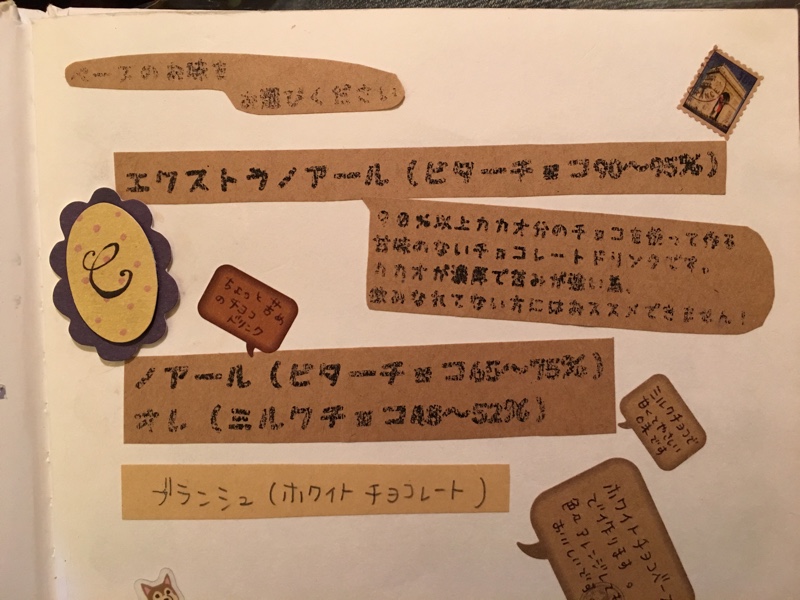 ベースのお味を
お選びください
エクストラノアール（ビターチョコ90〜95%）
90%以上カカオ分のチョコを使って作る
甘味のないチョコレートドリンクです。
カカオが濃厚で苦みが強い為、
飲みなれてない方にはおススメできません！
C
ちょっと苦め
のチョコ
ドリンク
ノアール（ビターチョコ65〜75%）
オレ（ミルクチョコ48〜52%）
ミルクチョコで
甘くてやさしい
お味です
ブランシュ（ホワイトチョコレート）
ホワイトチョコベース
で作ります。
色々アレンジして
おいしいです